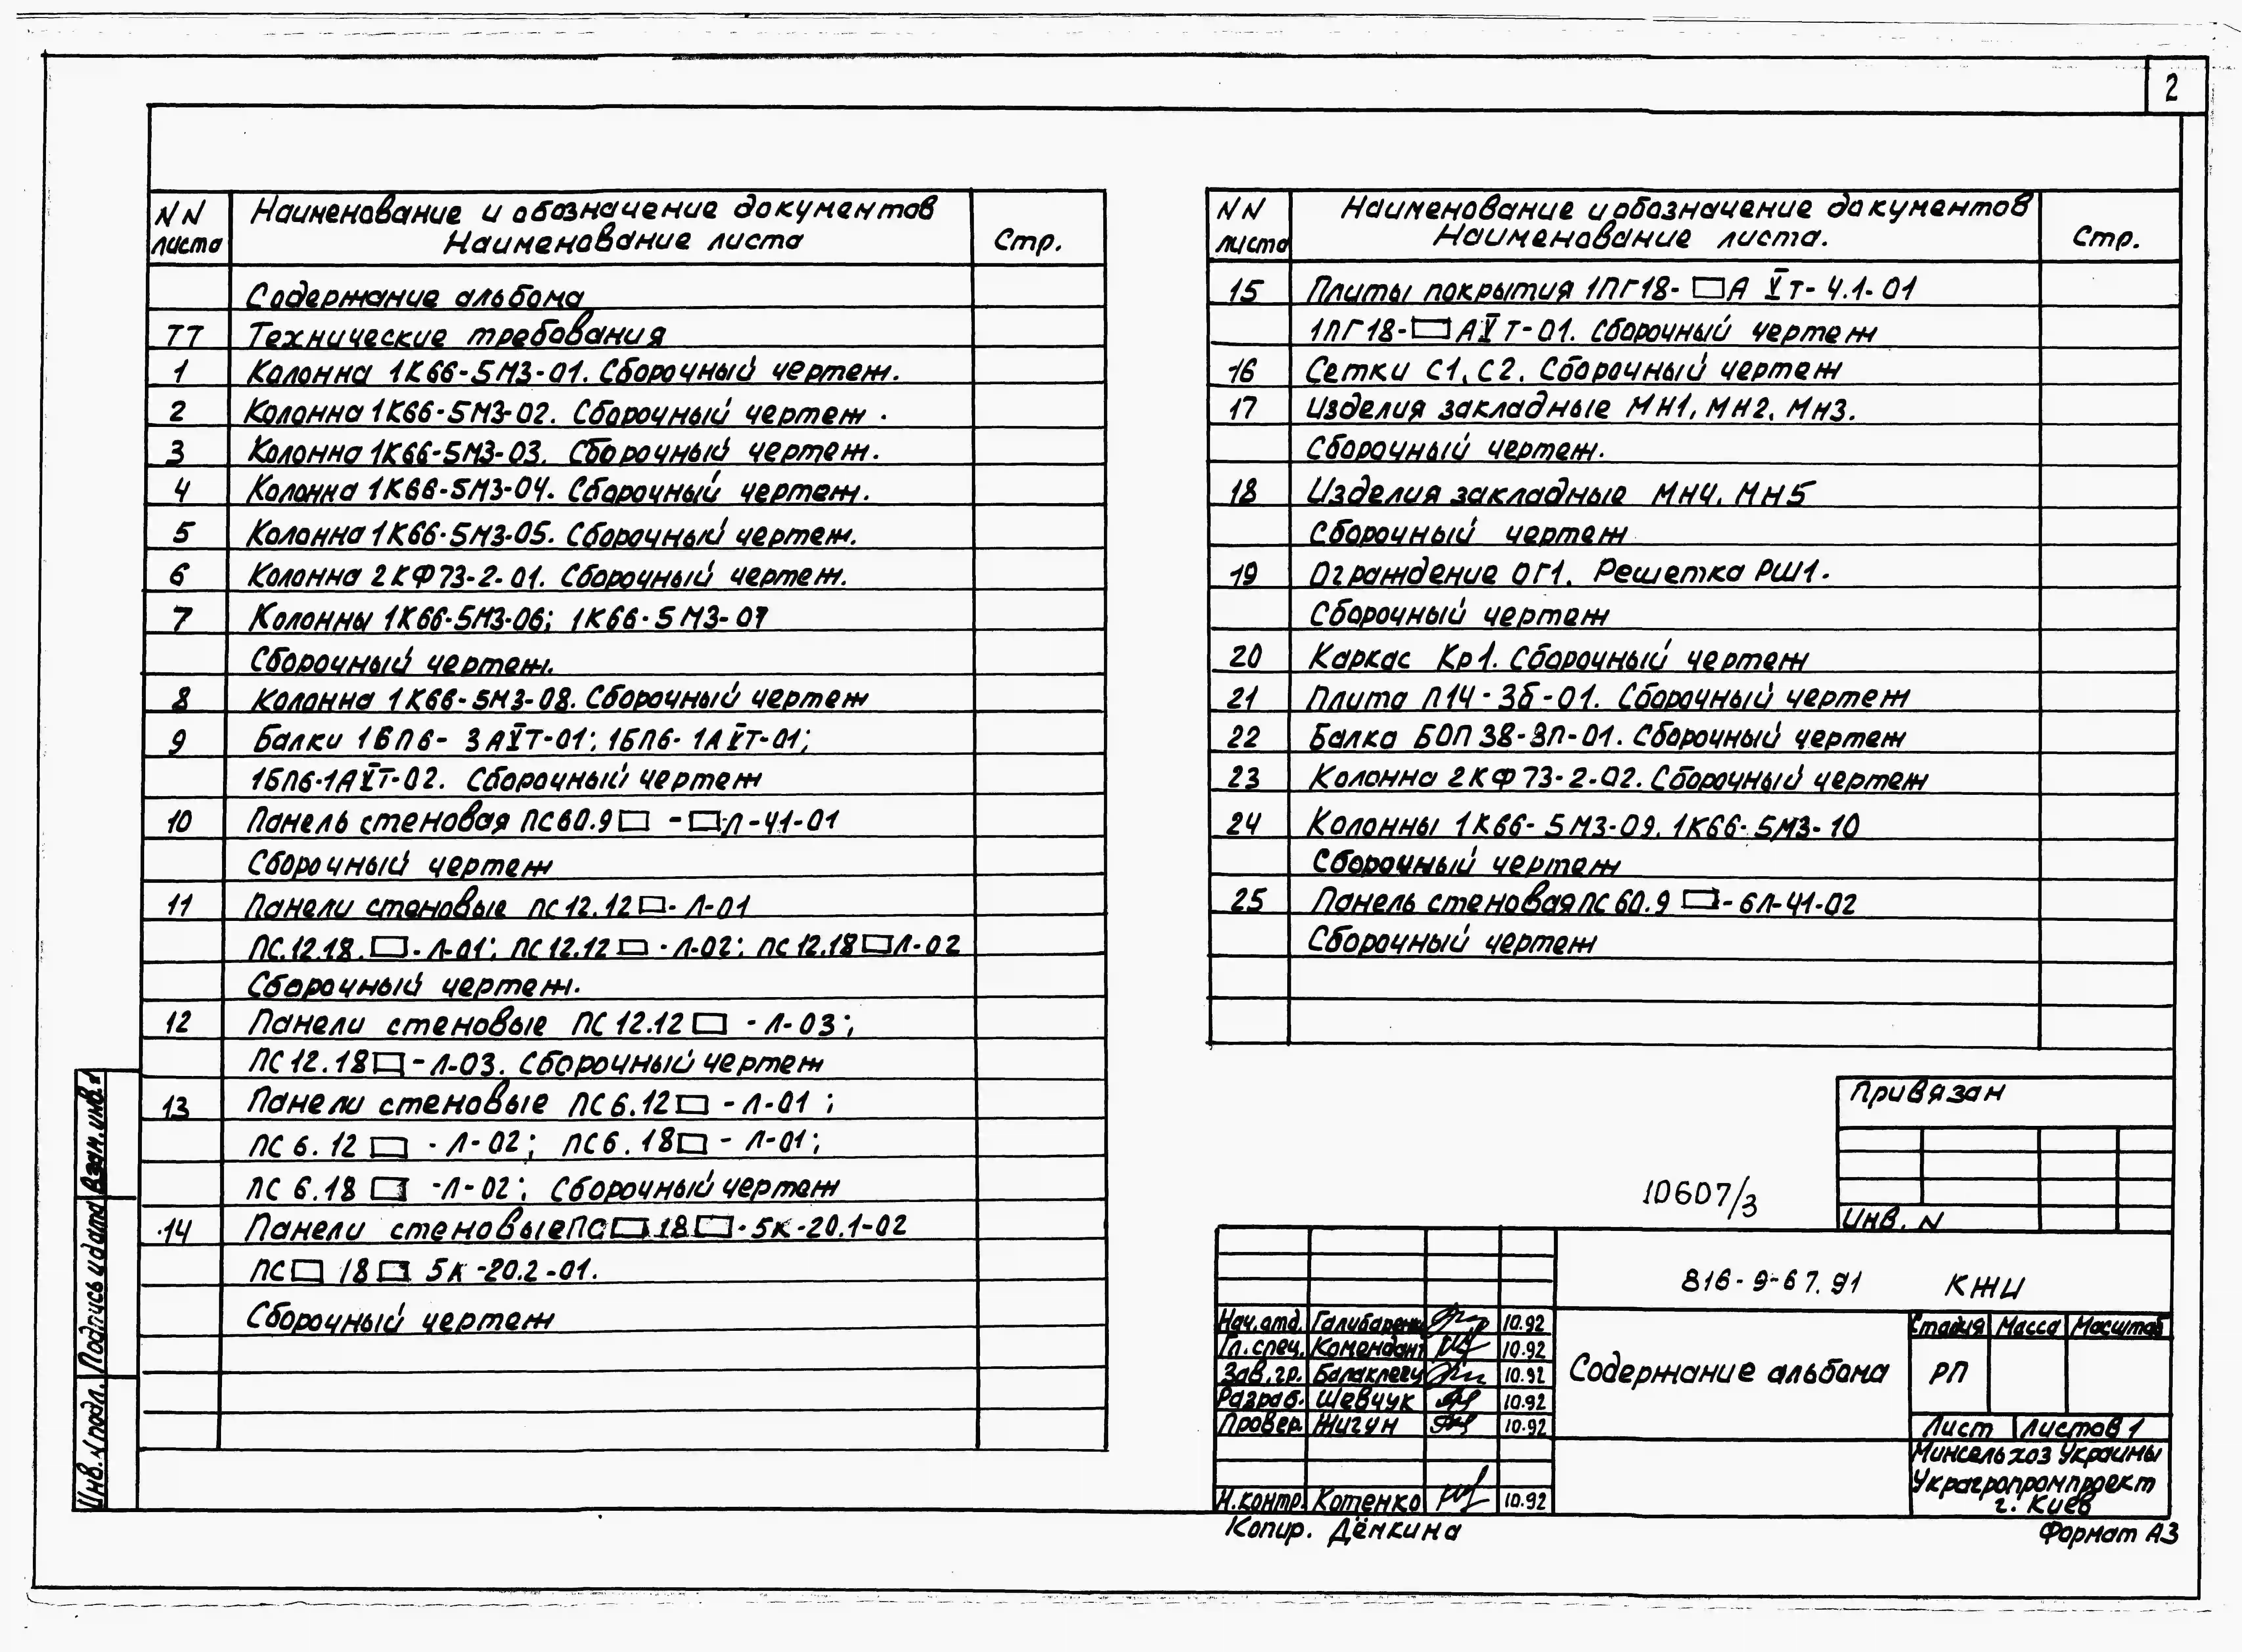 2
NN листа Наименование и обозначение документов Наименование листа Стр.
Содержание альбома
ТТ Технические требования
1 Колонна 1К66-5М3-01. Сборочный чертеж.
2 Колонна 1К66-5М3-02. Сборочный чертеж.
3 Колонна 1К66-5М3-03. Сборочный чертеж.
4 Колонна 1К66-5М3-04. Сборочный чертеж.
5 Колонна 1К66-5М3-05. Сборочный чертеж.
6 Колонна 2КФ73-2-01. Сборочный чертеж.
7 Колонны 1К66-5М3-06; 1К66-5М3-07
Сборочный чертеж.
8 Колонна 1К66-5М3-08. Сборочный чертеж
9 Балки 1БП6-3АVТ-01; 1БП6-1АVТ-01;
1БП6-1АVТ-02. Сборочный чертеж
10 Панель стеновая ПС60.9□ -□Л-41-01
Сборочный чертеж
11 Панели стеновые ПС12.12□-Л-01
ПС.12.18.□-Л-01; ПС12.12□-Л-02; ПС12.18□Л-02
Сборочный чертеж.
12 Панели стеновые ПС12.12□ -Л-03;
ПС12.18□-Л-03. Сборочный чертеж
13 Панели стеновые ПС6.12□ -Л-01;
ПС6.12□ -Л-02; ПС6.18□ - Л-01;
ПС6.18□ -Л-02; Сборочный чертеж
14 Панели стеновые ПС□18□-5К-20.1-02
ПС□18□ 5К-20.2-01.
Сборочный чертеж
NN листа Наименование и обозначение документов Наименование листа. Стр.
15 Плиты покрытия 1ПГ18-□А VТ-4.1-01
1ПГ18-□АVТ-01. Сборочный чертеж
16 Сетки С1, С2. Сборочный чертеж
17 Изделия закладные МН1, МН2, МН3.
Сборочный чертеж.
18 Изделия закладные МН4, МН5
Сборочный чертеж
19 Ограждение ОГ1. Решетка РШ1.
Сборочный чертеж
20 Каркас Кр1. Сборочный чертеж
21 Плита П14-3б-01. Сборочный чертеж
22 Балка БОП38-3П-01. Сборочный чертеж
23 Колонна 2КФ73-2-02. Сборочный чертеж
24 Колонны 1К66-5М3-09, 1К66-5М3-10
Сборочный чертеж
25 Панель стеновая ПС60.9□-6Л-41-02
Сборочный чертеж
Привязан
Инв. N
10607/3
816-9-67.91 КЖИ
Нач.отд. 10.92
Гл.спец. Комендант 10.92
Зав.гр. 10.92
Разраб. Шевчук 10.92
Провер. Жигун 10.92
Н.контр. Котенко 10.92
Содержание альбома
Стадия Масса Масштаб
РП
Лист Листов 1
Минсельхоз Украины
Украгропромпроект
г. Киев
Копир. Дёмкина
Формат А3
Взам.инв.
Подпись и дата
Инв. N подл.